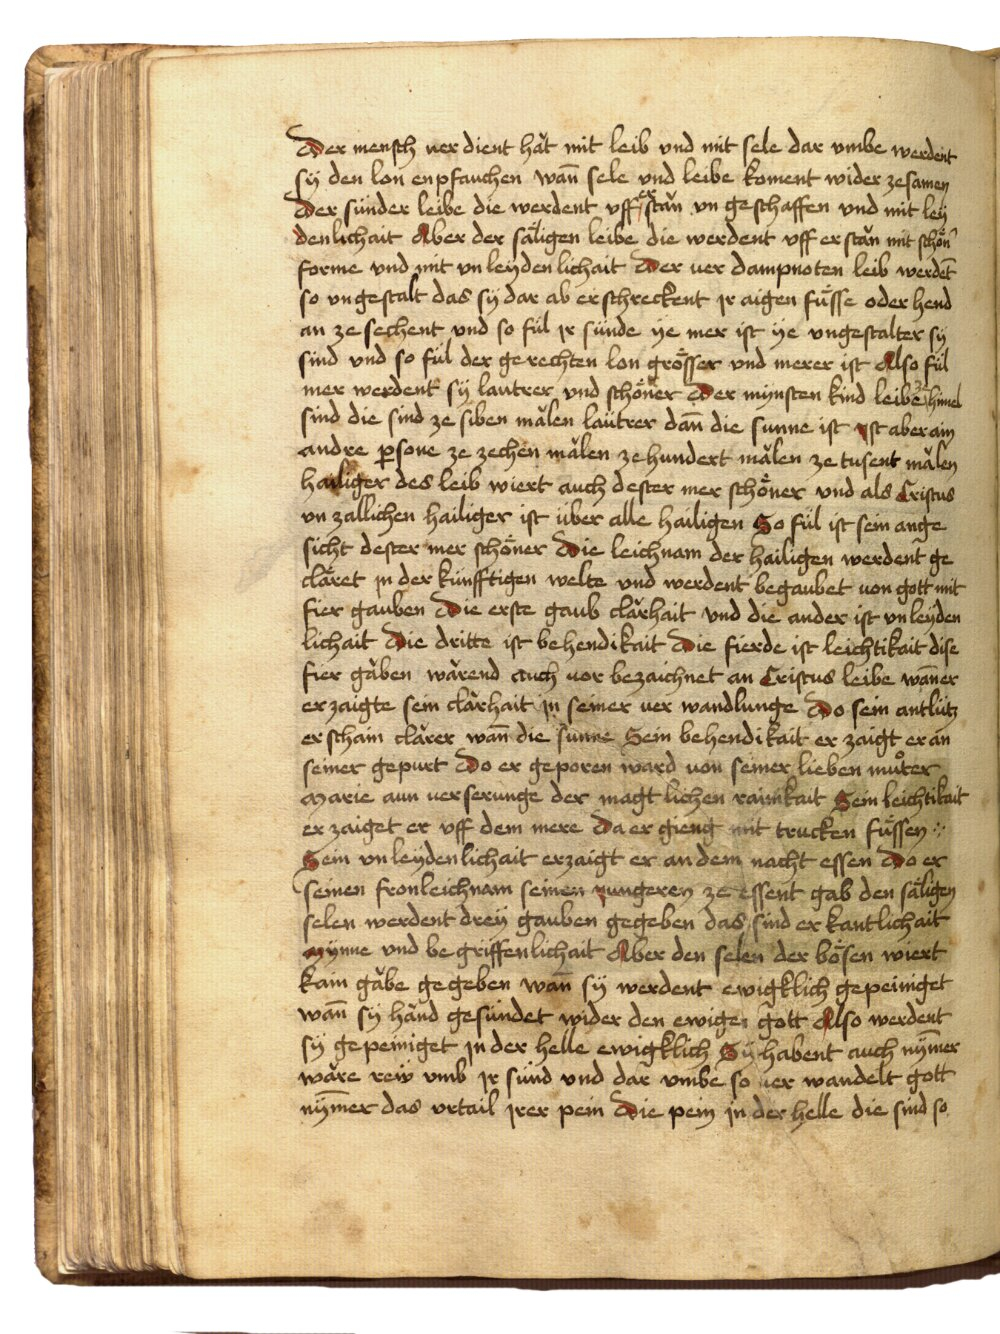 Der mensch ver dient hǎt mit leib vnd mit sele dar vmbe werdent
sÿ den lon enpfauchen wañ sele vnd leibe koment wider zesamen
Der sünder leibe die werdent vff er stǎn vn geschaffen vnd mit leÿ
denlichait Aber der sǎ̈ligen leibe die werdent vff er stǎn mit schöñ
forme vnd mit vn leÿden lichait Der ver dampnoten leib werdēt
so vngestalt das sÿ dar ab erschreckent jr aigen fu̇̈sse oder hend
an ze sechent vnd so fül jr sünde ÿe mer ist ÿe vngestalter sÿ
sind vnd so fül der gerechten lon grösser vnd merer ist Also fül
mer werdent sÿ lautrer vnd schöner Der mynsten kind leibe jn himel
sind die sind ze siben mǎlen lautrer dañ die sunne ist Ist aber ain
andre ꝑsone ze zechen mǎlen ze hundert mǎlen ze tusent mǎlen
hailiger des leib wiert auch dester mer schöner vnd als Cristus
vn zallichen hailiger ist über alle hailigen So fül ist sein ange
sicht dester mer schöner Die leichnam der hailigen werdent ge
clǎret jn der künfftigen welte vnd werdent begaubet von gott mit
fier gauben Die erste gaub clǎrhait vnd die ander ist vnleÿden
lichait Die dritte ist behendikait Die fierde ist leichtikait dise
fier gǎben wǎrend auch vor bezaichnet an Cristus leibe wañ er
er zaigte sein clǎrhait jn seiner ver wandlunge Do sein antlütz
er schain clǎrer wañ die sunne Sein behendikait er zaigt er an
seiner gepurt Do er geporen ward von seiner lieben mu̇ter
Marie aun verserunge der magtlichen rainikait Sein leichtikait
er zaiget er vff dem mere Da er gieng mit trucken fu̇̈ssen
Sein vnleÿdenlichait erzaigt er an dem nacht essen Do er
seinen fronleichnam seinen jungeren ze essent gab den sǎ̈ligen
selen werdent dreÿ gauben gegeben das sind er kantlichait
Mynne vnd begriffenlichait Aber den selen der bösen wiert
kain gǎbe gegeben wañ sÿ werdent ewigklich gepeiniget
wañ sÿ hǎnd gesündet wider den ewigen gott Also werdent
sÿ gepeiniget jn der helle ewigklich Sÿ habent auch nÿm̄er
wǎre rew vmb jr sünd vnd dar vmbe so ver wandelt gott
nÿm̄er das vrtail jrer pein Die pein jn der helle die sind so